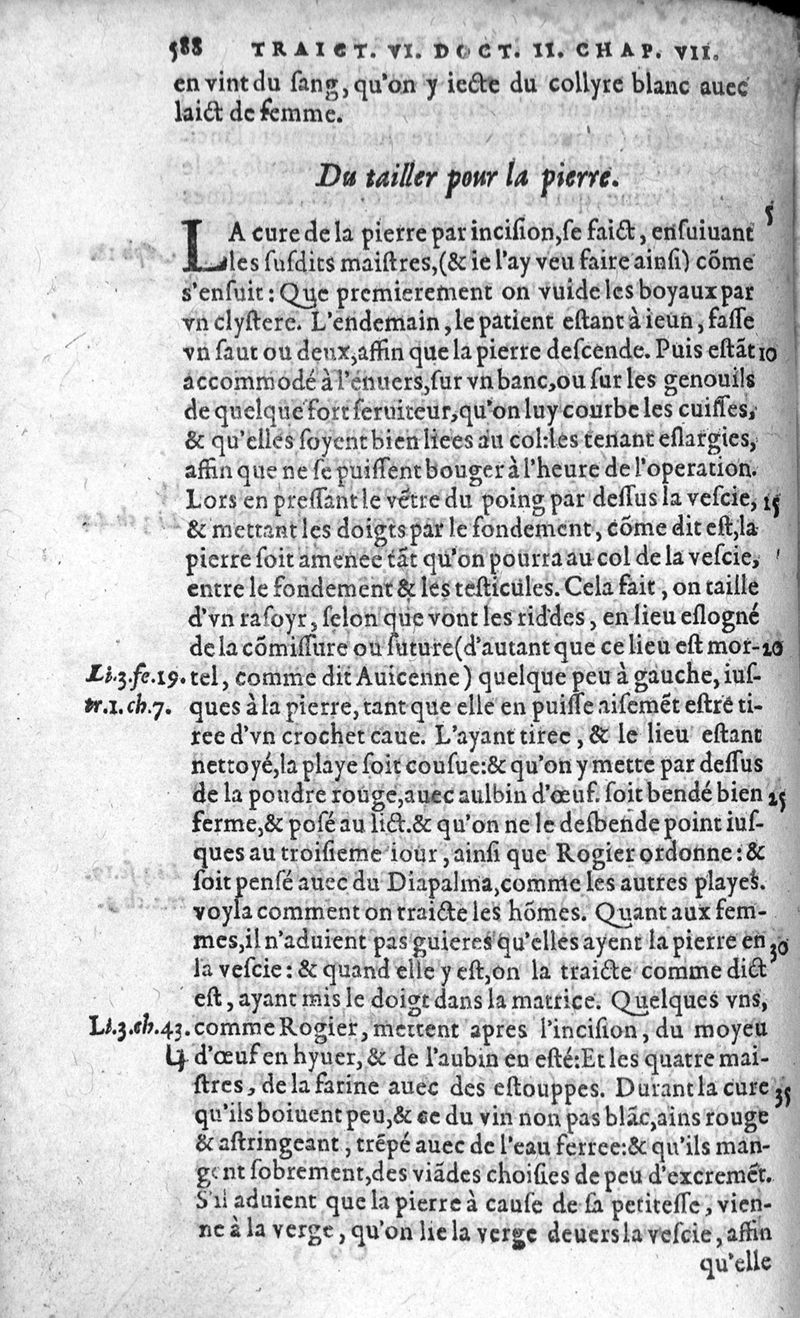 588 TRAICT. VI. DOCT. II. CHAP. VII.
en vint du ſang, qu'on y iecte du collyre blanc auec
laict de femme.
Du tailler pour la pierre.
5
LA cure de la pierre par inciſion, ſe faict, enſuiuant
les ſuſdits maiſtres, (& ie l'ay veu faire ainſi) cõme
s'enſuit: Que premierement on vuide les boyaux par
vn clyſtere. L'endemain, le patient eſtant à ieun, faſſe
vn ſaut ou deux, affin que la pierre deſcende. Puis eſtãt 10
accommodé à l'enuers, ſur vn banc, ou ſur les genouils
de quelque fort ſeruiteur, qu'on luy courbe les cuiſſes,
& qu'elles ſoyent bien liees au col: les tenant eſlargies,
affin que ne ſe puiſſent bouger à l'heure de l'operation.
Lors en preſſant le vẽtre du poing par deſſus la veſcie, 15
& mettant les doigts par le fondement, cõme dit eſt, la
pierre ſoit amenee tãt qu'on pourra au col de la veſcie,
entre le fondement & les teſticules. Cela fait, on taille
d'vn raſoyr, ſelon que vont les riddes, en lieu eſlogné
de la cõmiſſure ou ſuture (d'autant que ce lieu eſt mor- 20
Li.3.fe.19. tel, comme dit Auicenne) quelque peu à gauche, iuſ-
tr.1.ch.7. ques à la pierre, tant que elle en puiſſe aiſemẽt eſtre ti-
ree d'vn crochet caue. L'ayant tiree, & le lieu eſtant
nettoyé, la playe ſoit couſue: & qu'on y mette par deſſus
de la poudre rouge, auec aulbin d'œuf. ſoit bendé bien 25
ferme, & poſé au lict. & qu'on ne le deſbende point iuſ-
ques au troiſieme iour, ainſi que Rogier ordonne: &
ſoit penſé auec du Diapalma, comme les autres playes.
voyla comment on traicte les hõmes. Quant aux fem-
mes, il n'aduient pas guieres qu'elles ayent la pierre en 30
la veſcie: & quand elle y eſt, on la traicte comme dict
eſt, ayant mis le doigt dans la matrice. Quelques vns,
Li.3.ch.43. comme Rogier, mettent apres l'inciſion, du moyeu
d'œuf en hyuer, & de l'aubin en eſté: Et les quatre mai-
ſtres, de la farine auec des eſtouppes. Durant la cure 35
qu'ils boiuent peu, & ce du vin non pas blãc, ains rouge
& aſtringeant, trẽpé auec de l'eau ferree: & qu'ils man-
gent ſobrement, des viãdes choiſies de peu d'excremẽt.
S'il aduient que la pierre à cauſe de ſa petiteſſe, vien-
ne à la verge, qu'on lie la verge deuers la veſcie, affin
qu'elle